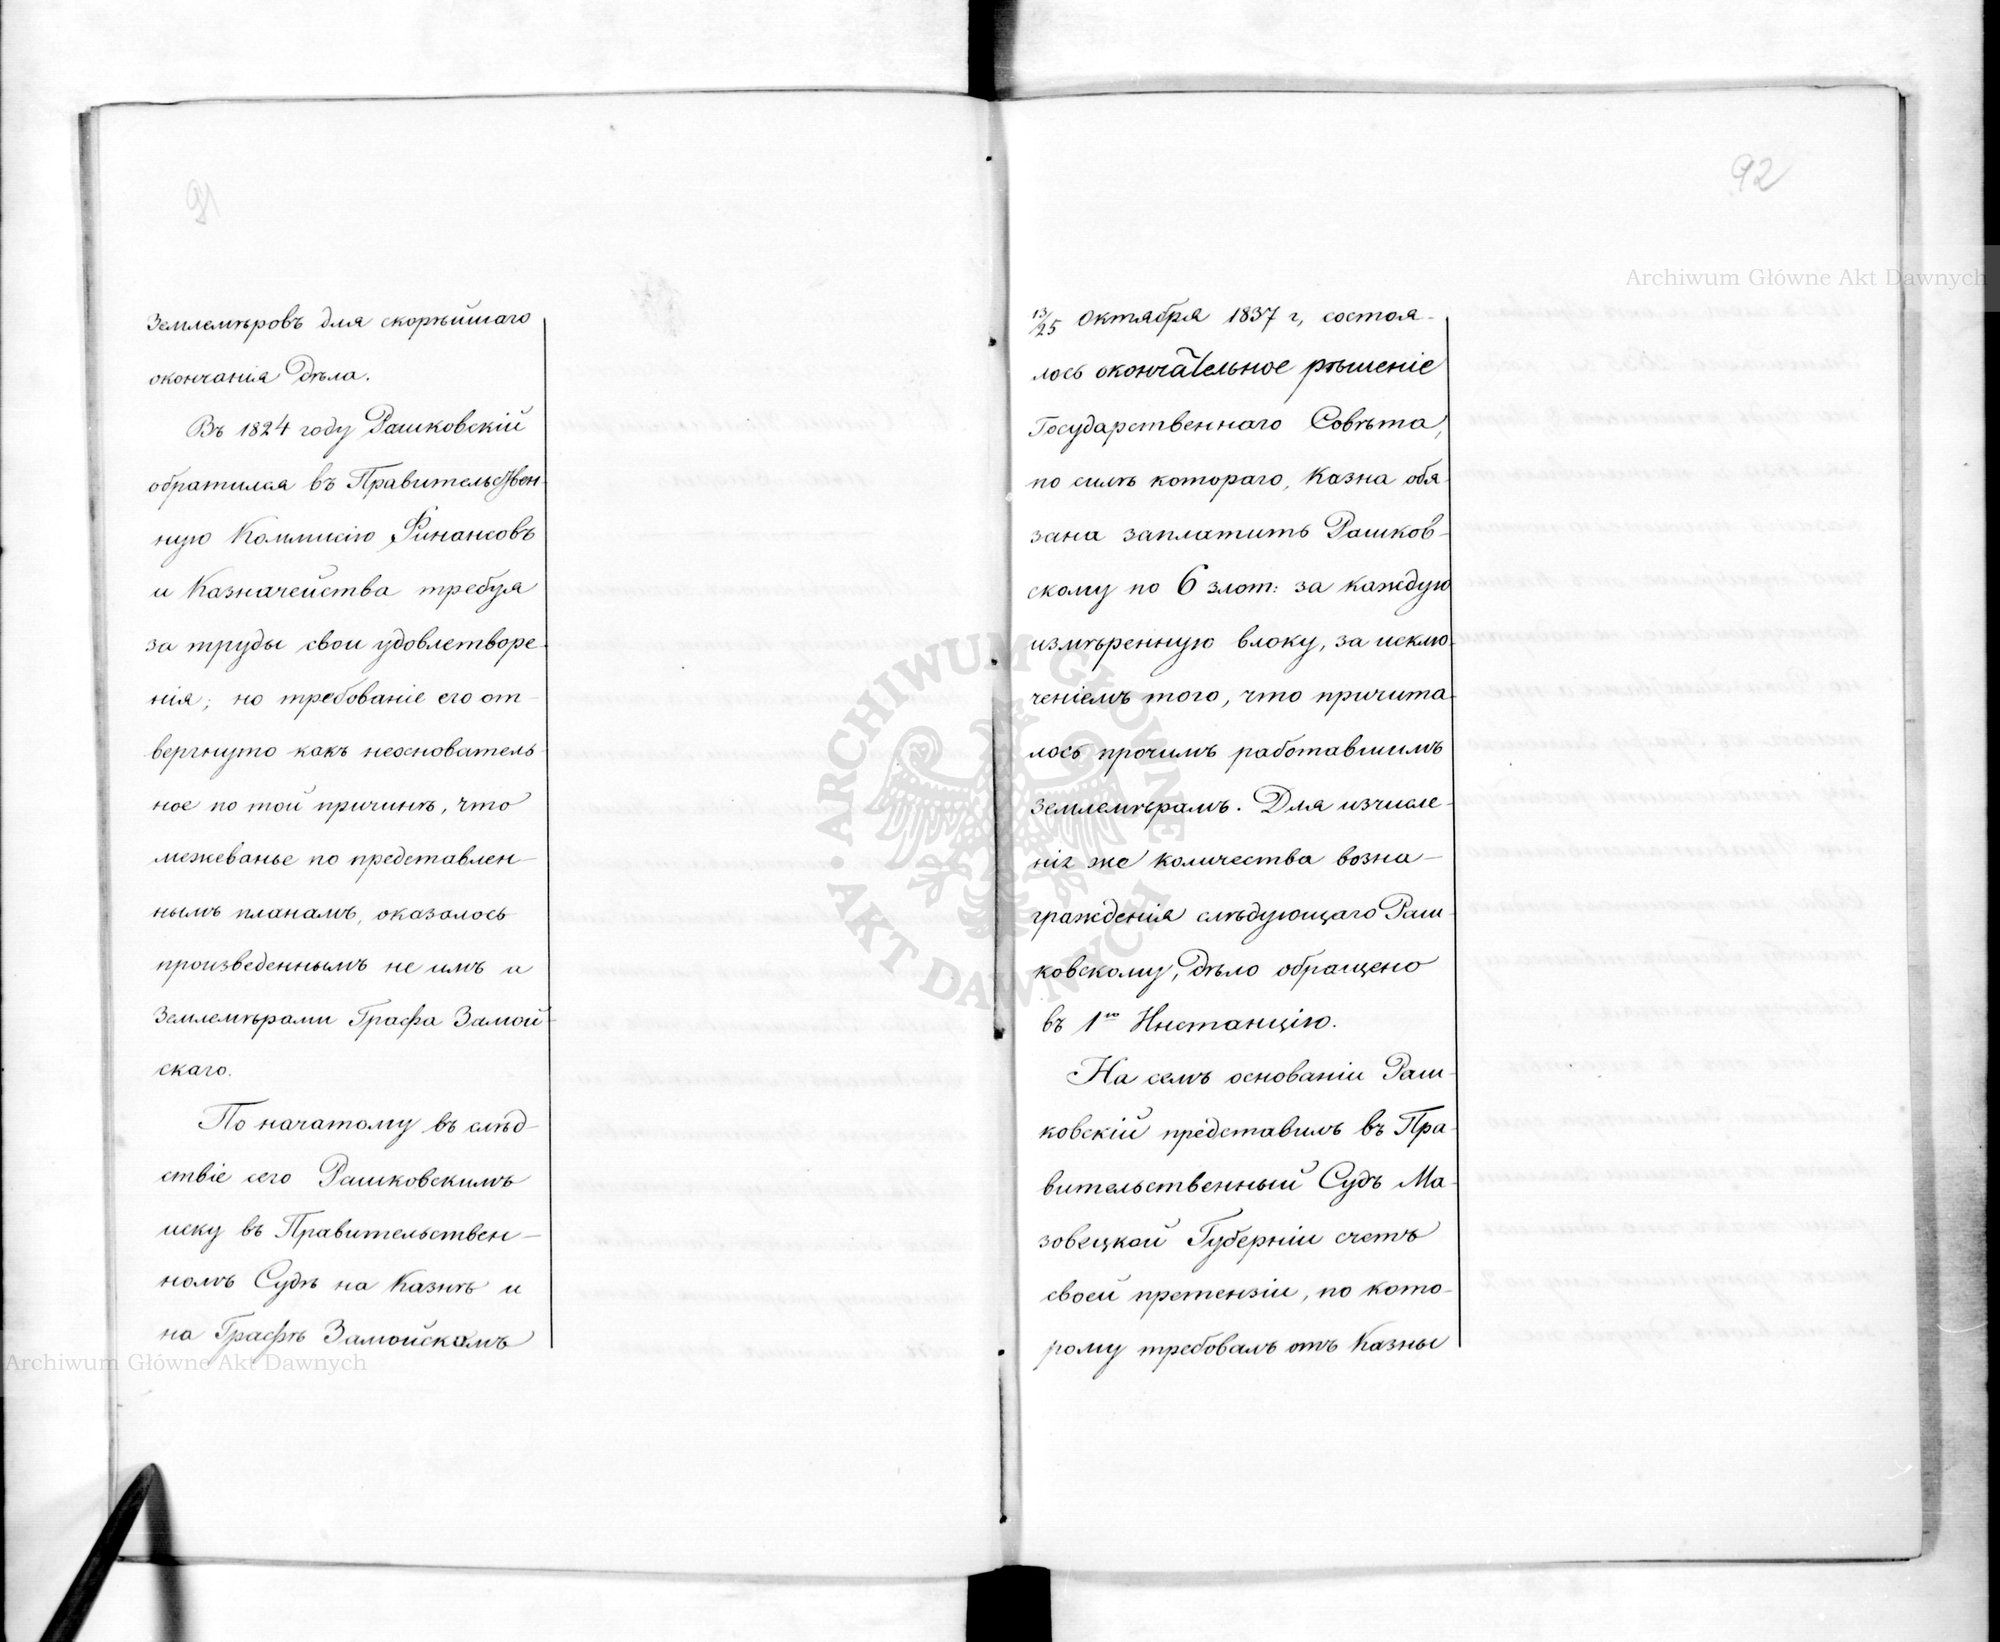 91
Землемѣровъ для скорѣйшаго
окончанія Дѣла.
Въ 1824 году Рашковскій
обратился въ Правительствен-
ную Коммисію Финансовъ
и Казначейства требуя
за труды свои удовлетворе-
нія; но требованіе его от-
вергнуто какъ неоснователь-
ное по той причинѣ, что
межеванье по представлен-
нымъ планамъ, оказалось
произведеннымъ не имъ а
Землемѣрами Графа Замой-
скаго.
По начатому въ слѣд-
ствіе сего Рашковскимъ
иску въ Правительствен-
номъ Судѣ на Казнѣ и
на Графѣ Замойскомъ
92
13/25 Октября 1837 г, состоя-
лось окончательное рѣшеніе
Государственнаго Совѣта,
по силѣ котораго, Казна обя-
зана заплатить Рашков-
скому по 6 злот: за каждую
измѣренную влоку, за исклю-
ченіемъ того, что причита-
лось прочимъ работавшимъ
Землемѣрамъ. Для изчисле-
нія же количества возна-
гражденія слѣдующаго Раш-
ковскому, Дѣло обращено
въ 1ю Инстанцію.
На семъ основаніи Раш-
ковскій представилъ въ Пра-
вительственный Судъ Ма-
зовецкой Губерніи счетъ
своей претензіи, по кото-
рому требовалъ отъ Казны
Archiwum Główne Akt Dawnych
Archiwum Główne Akt Dawnych
ARCHIWUM GŁÓWNE AKT DAWNYCH